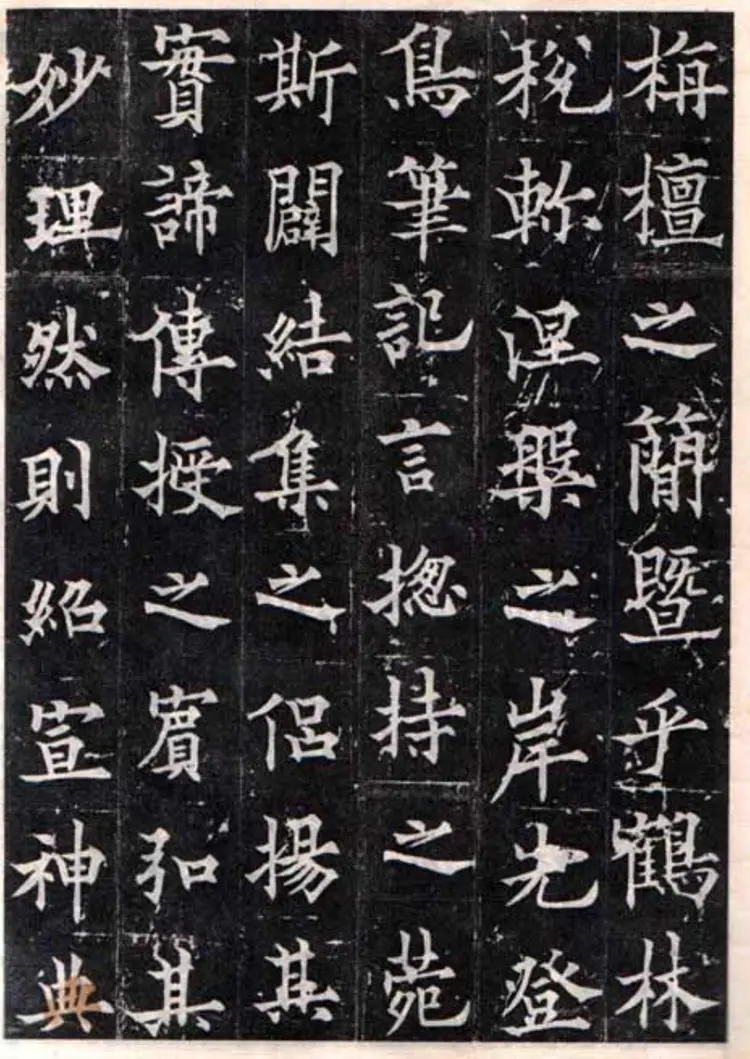 栴檀之簡暨乎鶴林
税軫涅槃之岸先登
鳥筆記言揔持之菀
斯闢結集之侶揚其
實諦傳授之賓弘其
妙理然則紹宣神典